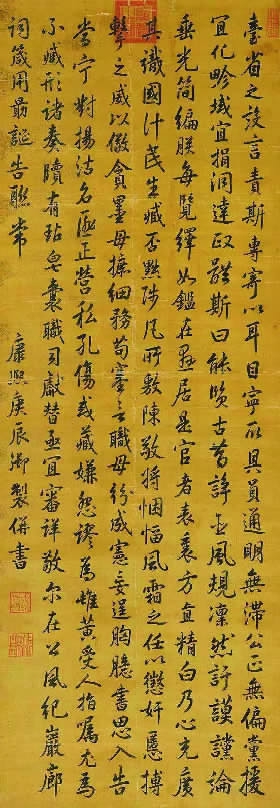 臺省之設言責斯專寄以耳目寧取具員通明無滯公正無偏黨援
宜化畛域宜捐洞達政體斯曰能賢古昔諍臣風規凜然訏謨讜論
垂光簡編朕每覽繹如鑑在懸居是官者表裏方直精白乃心充廣
其識國計民生臧否黜陟凡所敷陳敬將悃愊風霜之任以懲奸慝搏
擊之威以儆貪墨毋摭細務苟塞言職毋紛成憲妄逞胸臆書思入告
當宁對揚沽名匪正營私孔傷或藏嫌怨謬為雌黃受人指囑尤為
不臧形諸奏牘有玷皂囊職司獻替亟宜審詳敬爾在公風紀巖廊
詞箴用勗誕告聯常 康熙庚辰御製併書